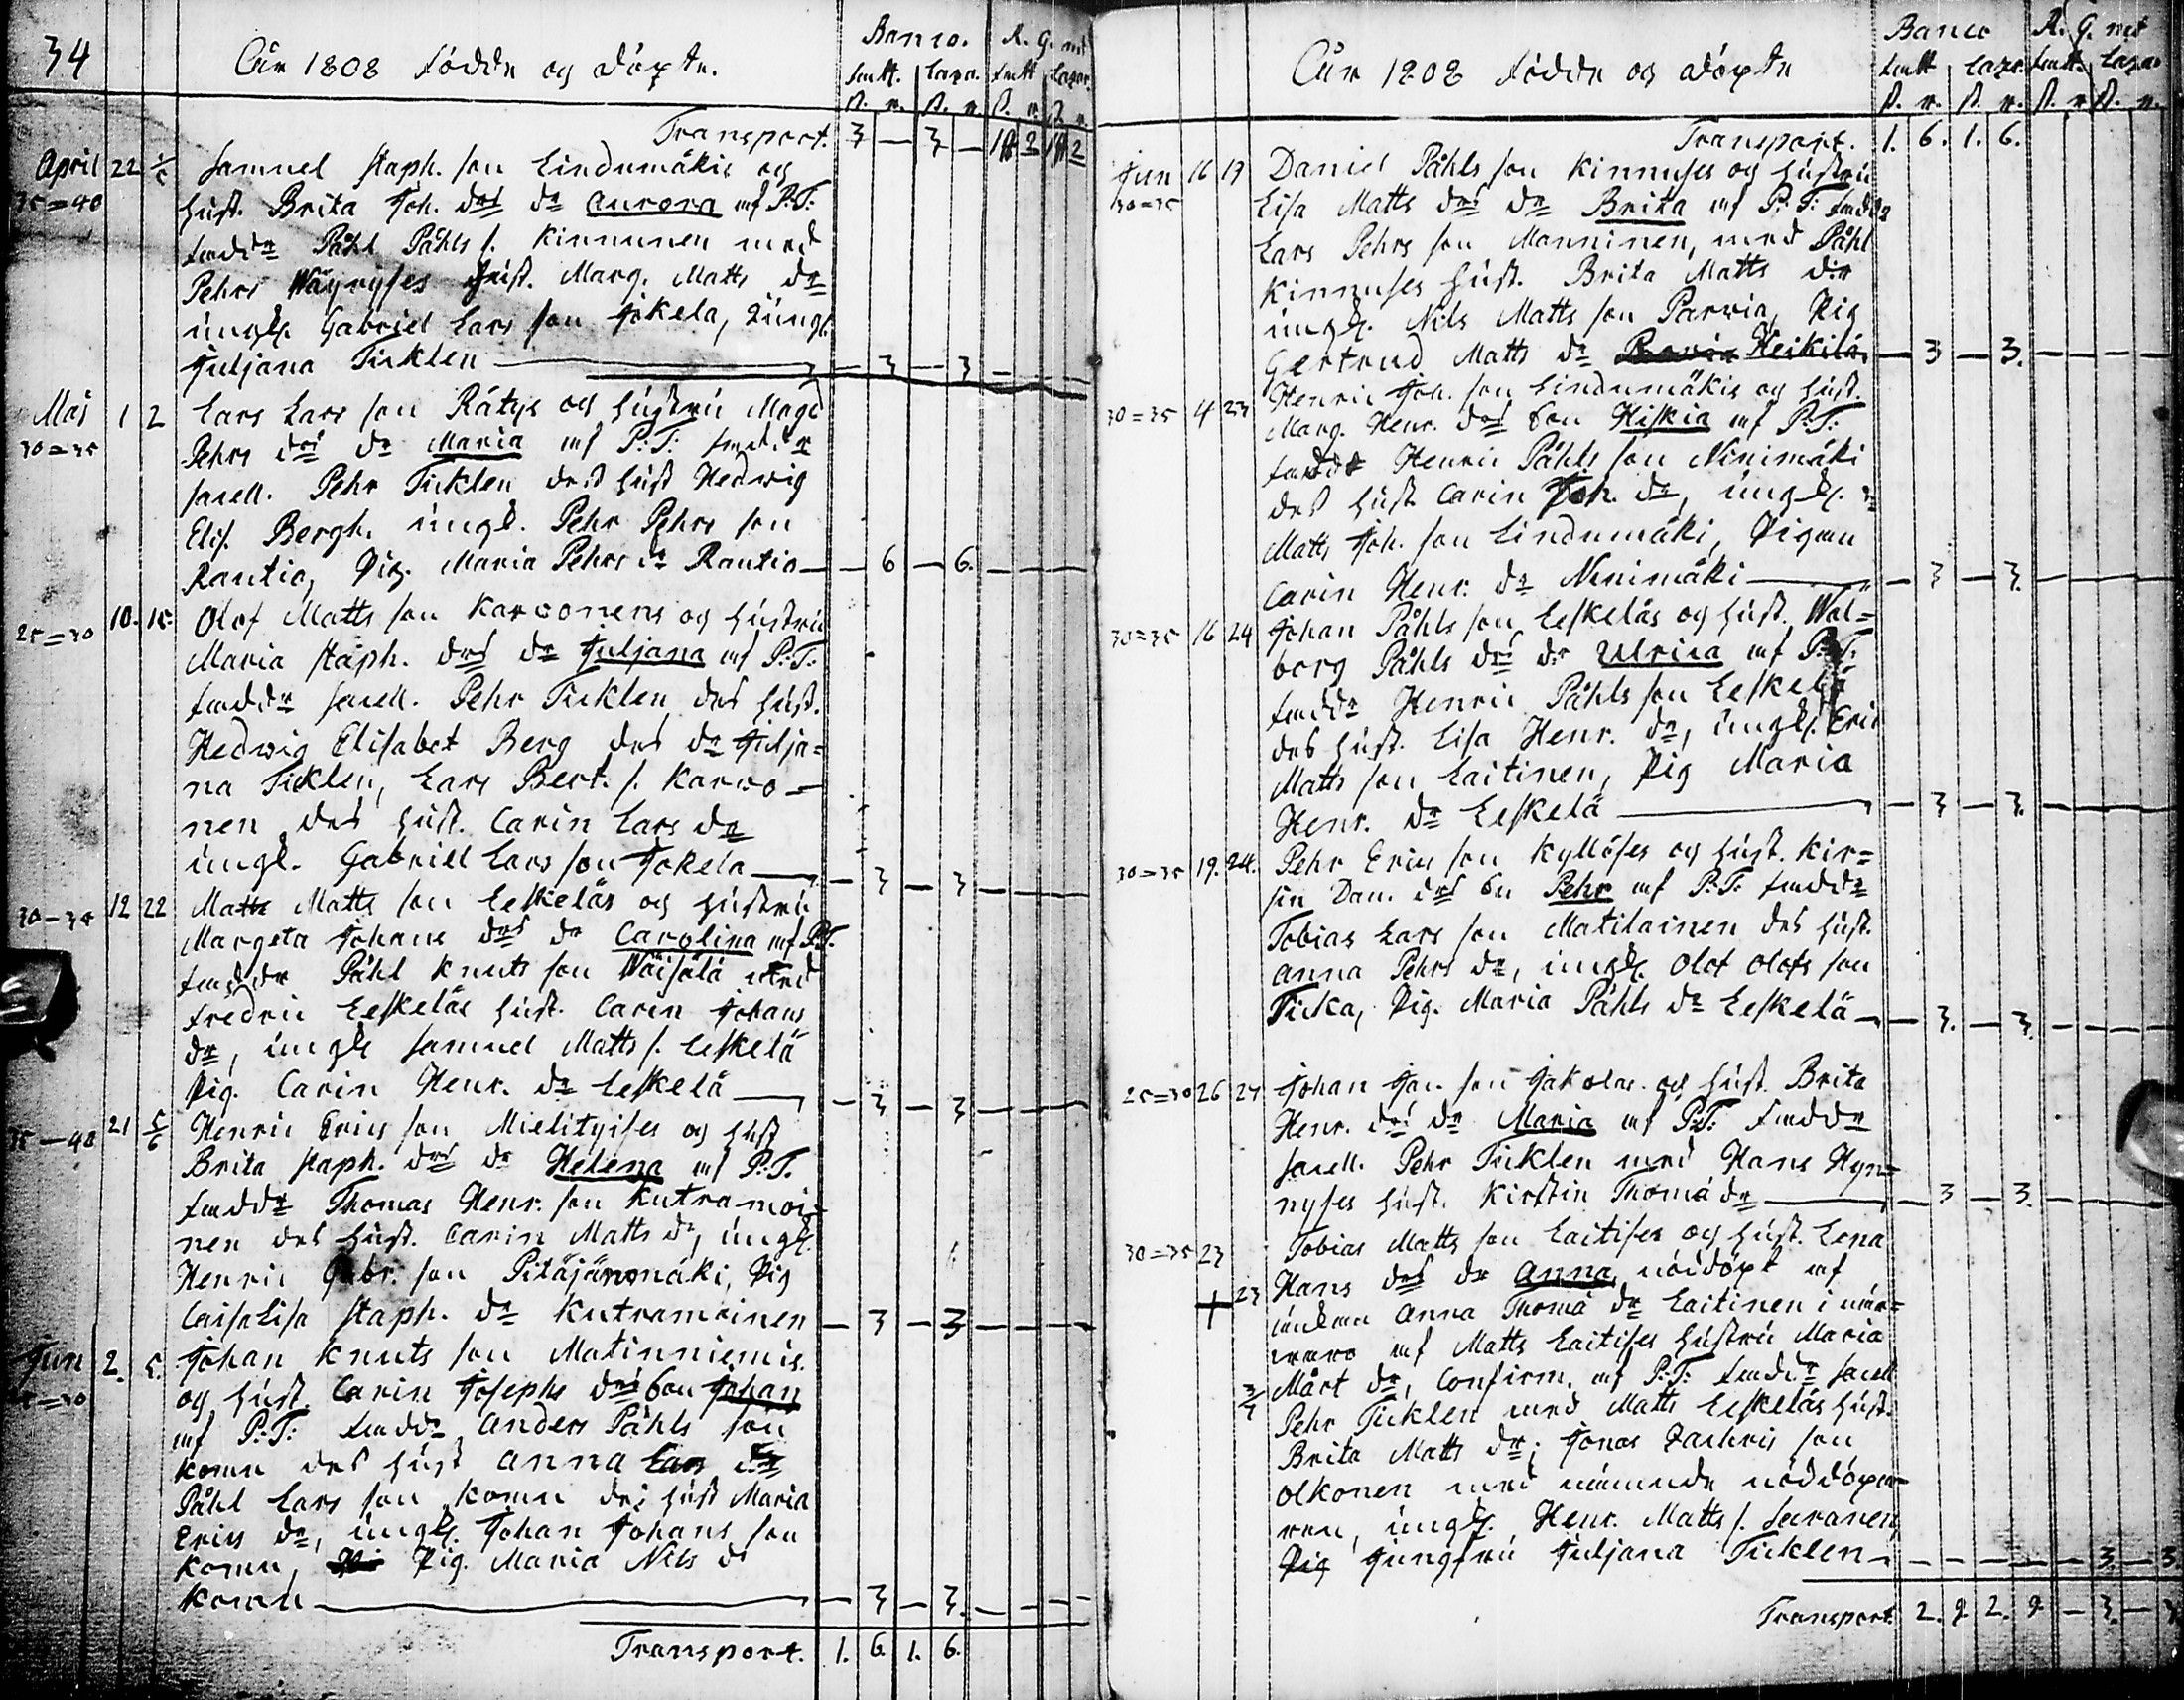 34
Åår 1808 födde og döpte.
Banco. R. G. med
fatt. Lazar. fatt Lazar.
ß. r. ß. r. ß. r. ß. r.
Transport. 3 — 3 — 18 2 18 2
April 22 1/5 Samuel Staph. son Lindumäkis og
35=40 hust. Brita Joh. drs dr Aurora af P:T:
faddr Påhl Påhls s. Kinnunen med
Pehrs Wäyryses hust. Marg. Matts dr
ungk. Gabriel Lars son Jokela, Jungf.
Juljana Ticklen — 3 — 3 — —
Maj 1 2 Lars Lars son Rätys og hustru Magd
30=35 Pehrs drs dr Maria af P:T: faddr
sacell. Pehr Ticklen des hust Hedwig
Elis. Bergh, ungk. Pehr Pehrs son
Rautio, Pig. Maria Pehrs dr Rautio — 6 — 6. — —
25=30 10. 15 Olof Matts son Karvonens og hustru
Maria Staph. drs dr Juljana af P:T:
faddr sacell. Pehr Ticklen des hust.
Hedwig Elisabet Berg des dr Julja=
na Ticklen, Lars Bert. s. Karvo=
nen des hust. Carin Lars dr
ungk. Gabriell Lars son Jokela — 3 — 3 — —
30-35 12 22 Matts Matts son Leskeläs og hustru
Margeta Johans drs dr Carolina af P:T.
faddr Påhl Knuts son Wäisälä med
Fredric Leskeläs hust. Carin Johans
dr, ungk Samuel Matts s. Leskelä
Pig. Carin Henr. dr Leskelä — 3 — 3 — —
35-40 21 5/6 Henric Erics son Mielityises og hust
Brita Staph. drs dr Helena af P:T.
faddr Thomas Henr. son Kutramoi=
nen des hust. Carin Matts dr, ungk.
Henric Gabr. son Pitäjänmäki, Pig
Caisa Lisa Staph. dr Kutramoinen — 3 — 3 — —
Jun 2. 5. Johan Knuts son Matinniemis.
25=30 og hust. Carin Josephs drs son Johan
af P:T: faddr Anders Påhls son
Komu des hust Anna Lars dr
Påhl Lars son Komu des hust Maria
Erics dr, ungk. Johan Johans son
Komu, Pig. Maria Nils dr
Komu — 3 — 3. — —
Transport. 1. 6. 1. 6.
Åår 1808 födde og döpte
Banco R. G. med
fatt Lazr. fatt. Lazar
ß. r. ß. r. ß. r. ß. r.
Transport. 1. 6. 1. 6.
Jun 16 19 Daniel Påhls son Kinnuses og hustru
30=35 Lisa Matts drs dr Brita af P:T: faddr
Lars Pehrs son Manninen, med Påhl
Kinnuses hust. Brita Matts dr
ungk. Nils Matts son Parvia, Pig
Gertrud Matts dr Heikilä — 3 — 3. — —
30=35 4 23 Henric Joh. son Lindumäkis og hust.
Marg. Henr. drs son Hiskia af P:T:
faddr Henric Påhls son Ninimäki
des hust. Carin Joh. dr, ungk.
Matts Joh. son Lindumäki, Pigan
Carin Henr. dr Ninimäki — 3 — 3. — —
30=35 16 24 Johan Påhls son Leskeläs og hust. Wal=
borg Påhls drs dr Ulrica af P:T:
faddr Henric Påhls son Leskelä
des hust. Lisa Henr. dr, ungk. Eric
Matts son Laitinen, Pig Maria
Henr. dr Leskelä — 3 — 3. — —
30=35 19. 24. Pehr Erics son Kyllöses og hust. Kir=
sin Dan. drs son Pehr af P:T: faddr
Tobias Lars son Matilainen des hust.
Anna Pehrs dr, ungk. Olof Olofs son
Ticka, Pig. Maria Påhls dr Leskelä — 3. — 3. — —
25=30 26 27 Johan Jac. son Jakolas og hust. Brita
Henr. drs dr Maria af P:T: faddr
sacell. Pehr Ticklen med Hans Hyn=
nyses hust. Kirstin Thoma dr — 3 — 3. — —
30=35 23 Tobias Matts son Laitises og hust. Lena
+ 23 Hans drs dr Anna, nöddöpt af
änkan Anna Thoma dr Laitinen i när=
waro af Matts Laitises hustru Maria
3/7 Mårt dr, Confirm. af P:T: faddr sacell
Pehr Ticklen med Matts Leskeläs hust.
Brita Matts dr, Jonas Zachris son
Olkonen med nämnde nöddöpa=
ren, ungk. Henr. Matts s. Savanen,
Pig Jungfru Juljana Ticklen — — — — 3. — 3
Transport 2. 9 2. 9 — 3. — 3